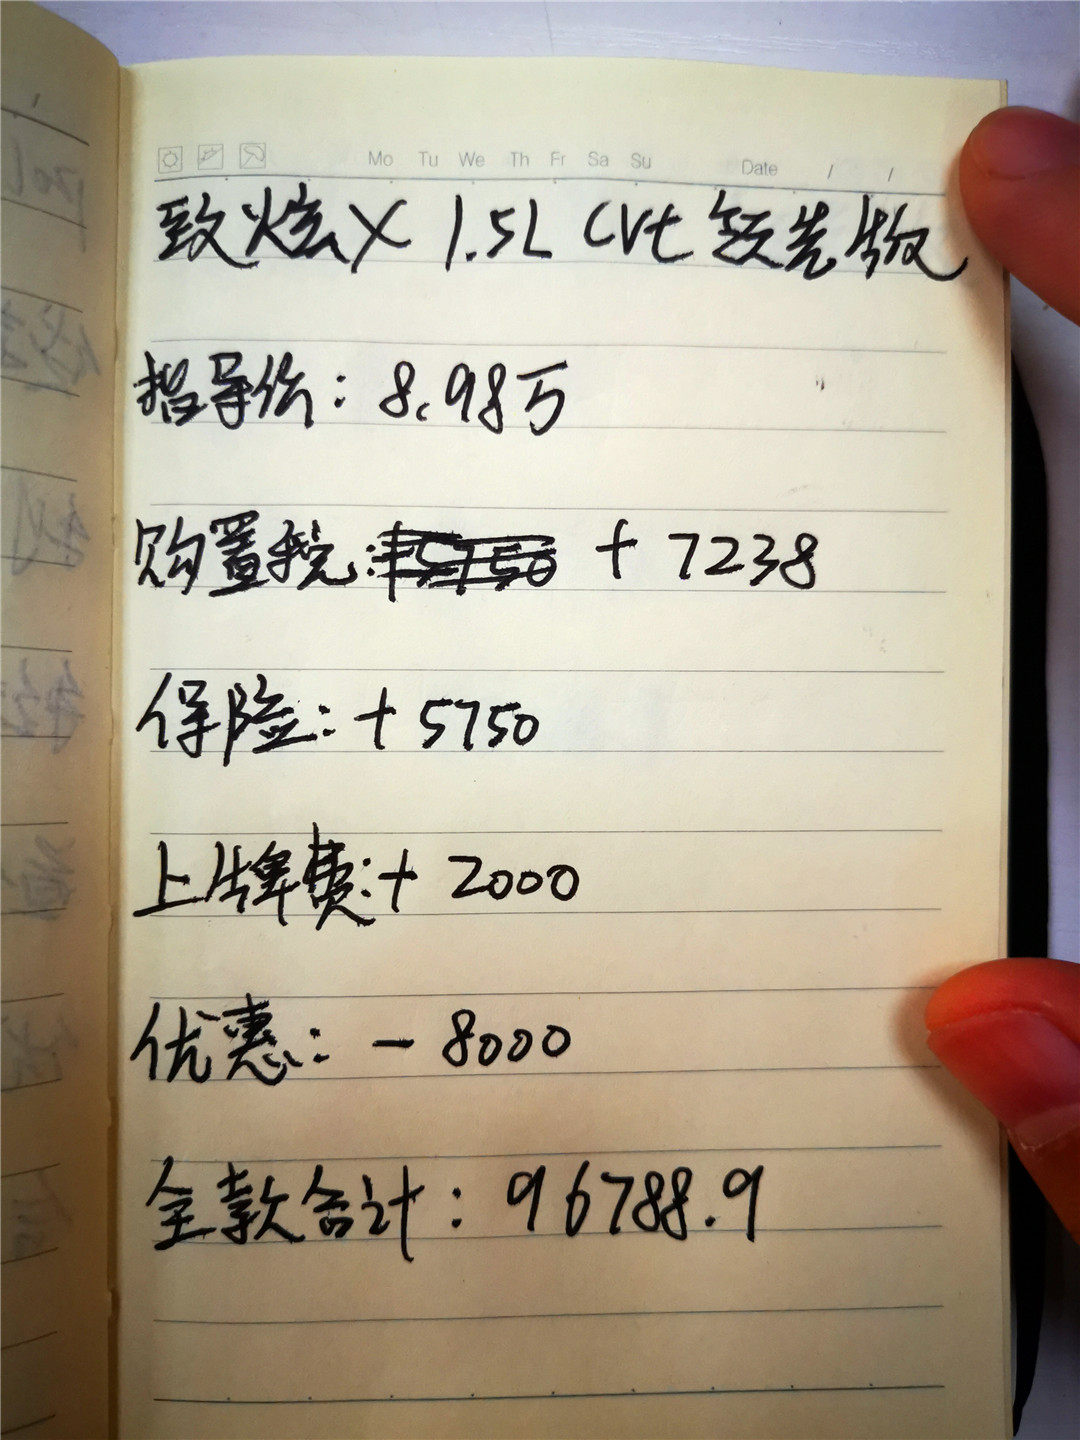 Mo Tu We Th Fr Sa Su Date / /
致炫X 1.5L CVt 领先版
指导价：8.98万
购置税：+ 7238
保险：+ 5750
上牌费：+ 2000
优惠：- 8000
全款合计：96788.9